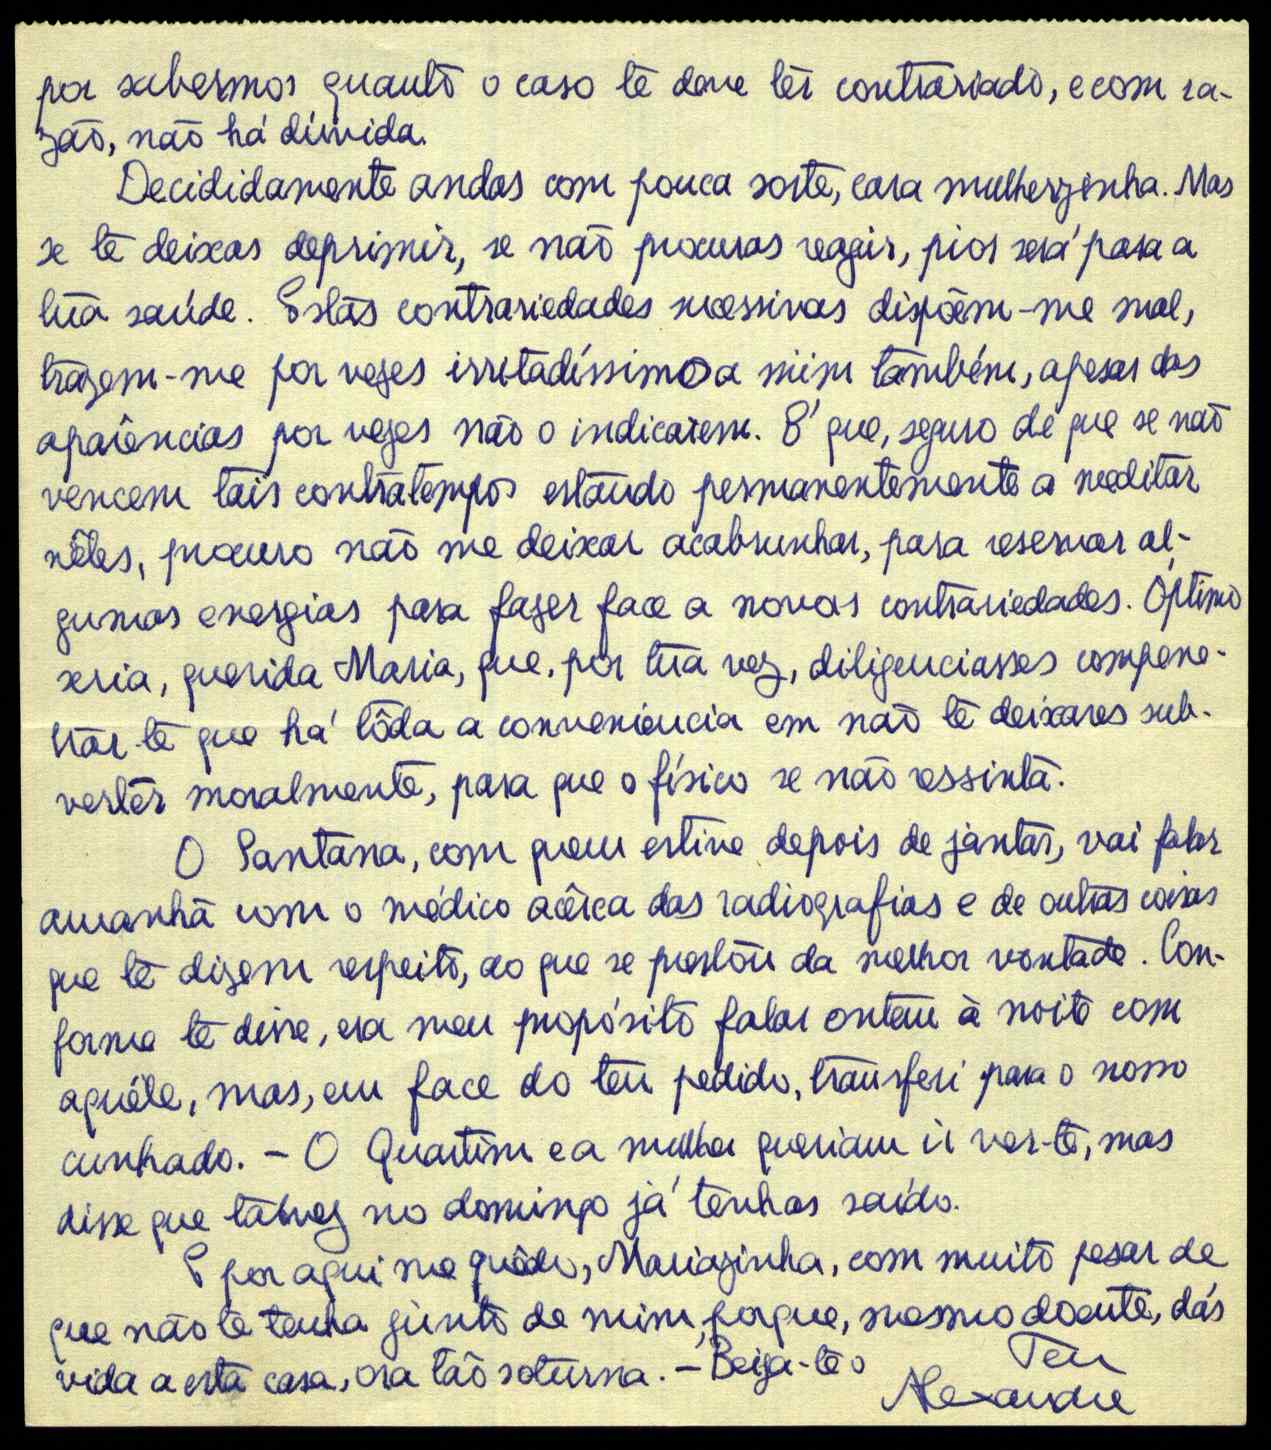 por sabermos quanto o caso te deve ter contrariado, e com ra-
zão, não há dúvida.
Decididamente andas com pouca sorte, cara mulherzinha. Mas
se te deixas deprimir, se não procuras reagir, pior será para a
tua saúde. Estas contrariedades sucessivas dispõem-me mal,
trazem-me por vezes irritadíssimo a mim também, apesar das
aparências por vezes não o indicarem. É que, seguro de que se não
vencem tais contratempos estando permanentemente a meditar
nêles, procuro não me deixar acabrunhar, para reservar al-
gumas energias para fazer face a novas contrariedades. Óptimo
seria, querida Maria, que, por tua vez, diligenciasses compene-
trar-te que há tôda a conveniência em não te deixares sub-
verter moralmente, para que o físico se não ressinta.
O Santana, com quem estive depois de jantar, vai falar
amanhã com o médico acêrca das radiografias e de outras coisas
que te dizem respeito, ao que se prestou da melhor vontade. Con-
forme te disse, era meu propósito falar ontem à noite com
aquêle, mas, em face do teu pedido, transferi para o nosso
cunhado. - O Quartim e a mulher queriam ir ver-te, mas
disse que talvez no domingo já tenhas saído.
E por aqui me quêdo, Mariazinha, com muito pesar de
que não te tenha junto de mim, porque, mesmo doente, dás
vida a esta casa, ora tão soturna. - Beija-te o
Teu
Alexandre